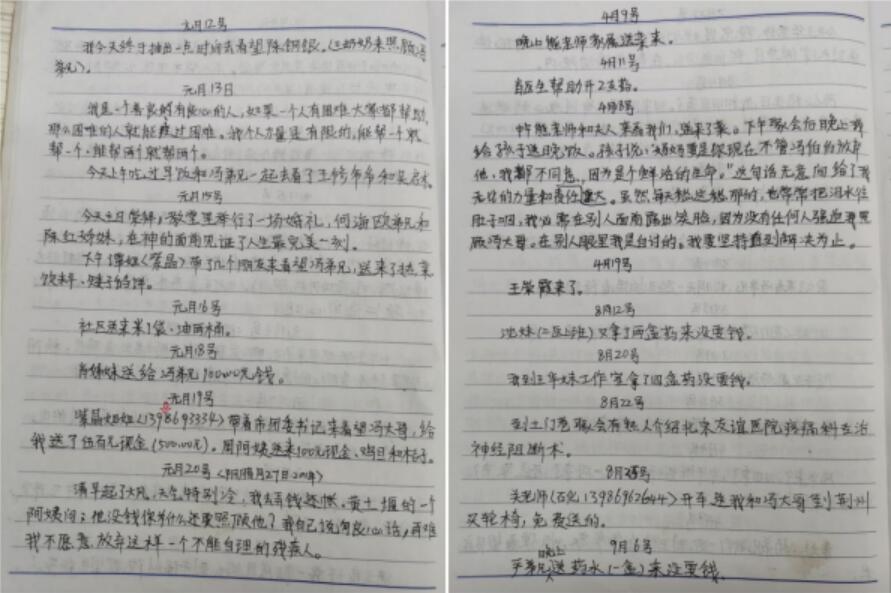 元月12号
我今天终于抽出一点时间去看望陈钢银。(三奶奶来照顾冯
弟兄)。
元月13日
我是一个善良的有良心的人,如果一个人有困难大家都帮助,
那么困难的人就能度过困难。我个人力量是有限的,能帮一个就
帮一个,能帮两个就帮两个。
今天上午吃过早饭和冯弟兄一起去看了王修爷爷和
元月15号
今天主日崇拜,教堂里举行了一场婚礼,何海欧弟兄和
陈红姊妹,在神的面前见证了人生最完美一刻。
下午谭姐(紫晶)带了几个朋友来看望冯弟兄,送来了热菜
饮料、饺子馅饼。
元月16号
社区送来米1袋、油两桶。
元月18号
肖姊妹送给冯弟兄100.00元钱。
元月19号
紫晶姐姐(1398693334)带着市团委书记来看望冯大哥,给
我送了伍百元现金(500.00元)。周阿姨送来100元现金、鸡旦和桔子。
元月20号(阴历腊月27日·2014年)
清早起了大风,天气特别冷,我去有钱还帐。黄土堰的一个
阿姨问;他没钱你为什么还要照顾他?我自己说句良心话,再难
我不愿意放弃这样一个不能自理的残疾人。
4月9号
晚上熊老师家属送菜来。
4月11号
肖医生帮助开2支药。
4月8号
中午熊老师和夫人来看我们,送来了菜。下午聚会后晚上我
给孩子送晚饭。孩子说:“妈妈要是你现在不管冯伯伯放弃
他,我都不同意,因为是个鲜活的生命。”这句话无意间给了我
无穷的力量和责任重大。虽然,每天愁这愁那的,也常常把泪水往
肚子咽,我必需在别人面前露出笑脸,因为没有任何人强迫我照
顾冯大哥。在别人眼里我是自讨的。我要坚持直到解决为止。
4月19号
王荣霞来了。
8月12号
沈妹(二医上班)又拿了两盒药来没要钱。
8月20号
我到王华妹工作室拿了四盒药没要钱。
8月22号
到土门垭聚会有熟人介绍北京友谊医院疼痛科在治
神经阻断术。
8月25号
关老师(石化13986962644)开车送我和冯大哥到荆州
买轮椅,免费送的。
9月6号
晚上
弟兄送药水(一盒)来没要钱。